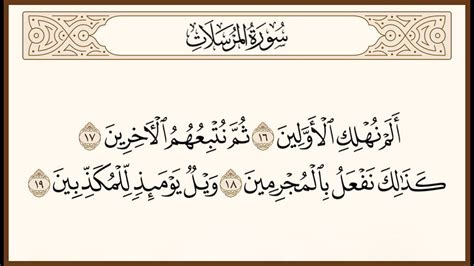 سُورَةُ الْمُرْسَلَاتِ
أَلَمْ نُهْلِكِ ٱلْأَوَّلِينَ ١٦ ثُمَّ نُتْبِعُهُمُ ٱلْأَخِرِينَ ١٧
كَذَٰلِكَ نَفْعَلُ بِٱلْمُجْرِمِينَ ١٨ وَيْلٌ يَوْمَئِذٍ لِّلْمُكَذِّبِينَ ١٩